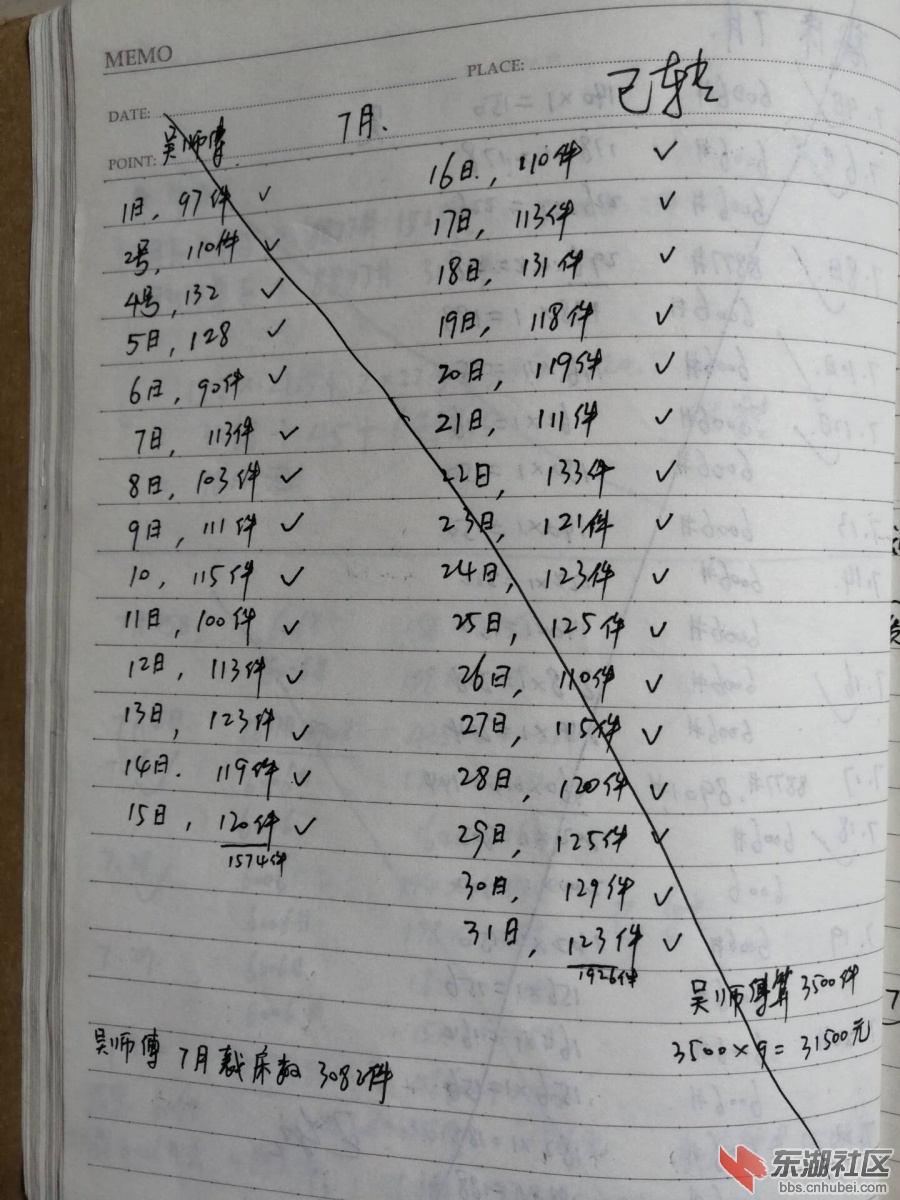 MEMO
PLACE:
已转
DATE:
7月.
POINT:
吴师傅
1日, 97件 ✓
2号, 110件 ✓
4号, 132 ✓
5日, 128 ✓
6日, 90件 ✓
7日, 113件 ✓
8日, 103件 ✓
9日, 111件 ✓
10, 115件 ✓
11日, 100件 ✓
12日, 113件 ✓
13日, 123件 ✓
14日. 119件 ✓
15日, 120件 ✓
1574件
16日, 110件 ✓
17日, 113件 ✓
18日, 131件 ✓
19日, 118件 ✓
20日, 119件 ✓
21日, 111件 ✓
22日, 133件 ✓
23日, 121件 ✓
24日, 123件 ✓
25日, 125件 ✓
26日, 110件 ✓
27日, 115件 ✓
28日, 120件 ✓
29日, 125件 ✓
30日, 129件 ✓
31日, 123件 ✓
1926件
吴师傅算3500件
3500×9=31500元
吴师傅7月裁床数3082件
东湖社区
bbs.cnhubei.com